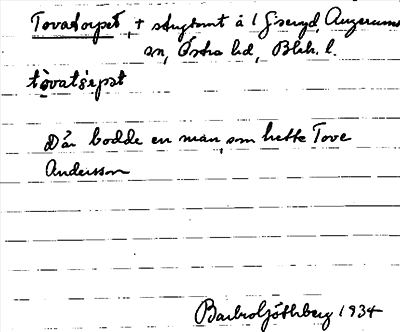 Tovatorpet, + stugtomt å 1 Gisseryd, Augerums
sn, Östra hd, Blek. l.
tòvatɷrpət
Där bodde en man, som hette Tove
Andersson
Barbro Göthberg 1934